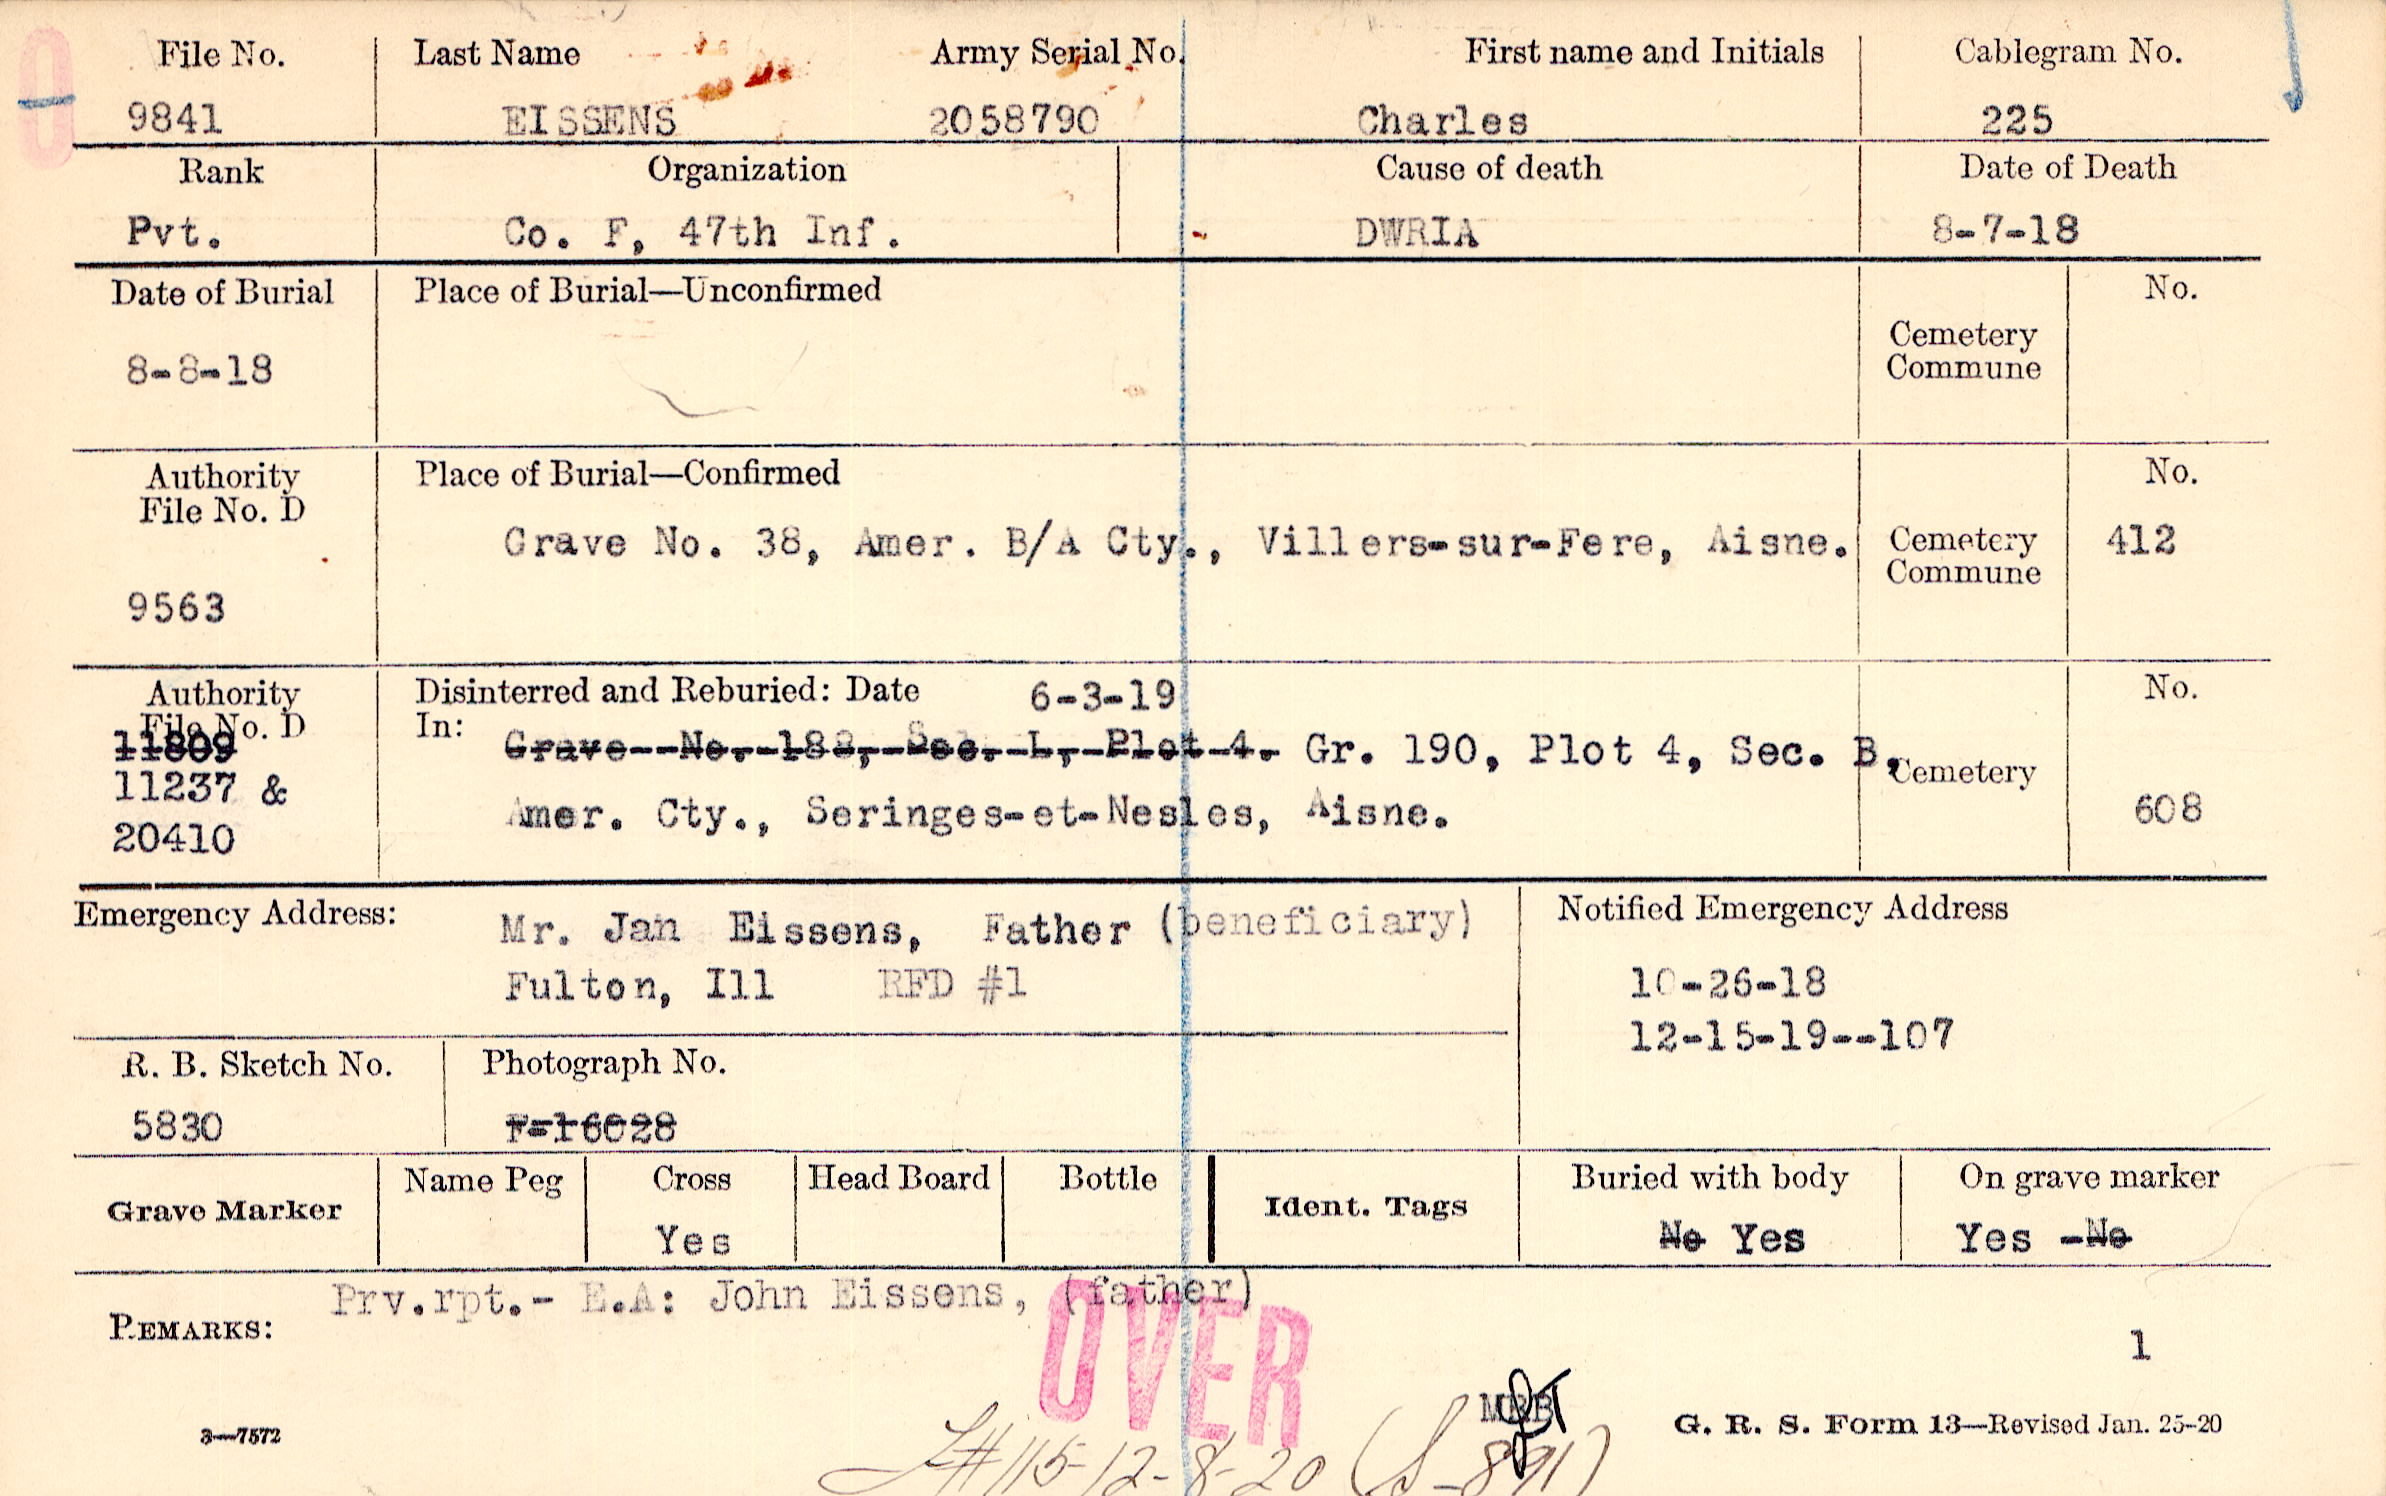 File No. Last Name Army Serial No. First name and Initials Cablegram No.
9841 EISSENS 2058790 Charles 225
Rank Organization Cause of death Date of Death
Pvt. Co. F, 47th Inf. DWRIA 8-7-18
Date of Burial Place of Burial—Unconfirmed No.
Cemetery
Commune
8-8-18
Authority Place of Burial—Confirmed No.
File No. D
Grave No. 38, Amer. B/A Cty., Villers-sur-Fere, Aisne. Cemetery 412
Commune
9563
Authority Disinterred and Reburied: Date 6-3-19 No.
File No. D In:
11809 Grave--No.-188,-Sec.-L,-Plot-4. Gr. 190, Plot 4, Sec. B,
Cemetery
11237 & Amer. Cty., Seringes-et-Nesles, Aisne. 608
20410
Emergency Address: Mr. Jan Eissens, Father (beneficiary) Notified Emergency Address
Fulton, Ill RFD #1 10-26-18
12-15-19--107
R. B. Sketch No. Photograph No.
5830 F=16028
Grave Marker Name Peg Cross Head Board Bottle Ident. Tags Buried with body On grave marker
Yes No Yes Yes -No
Prv.rpt.- E.A: John Eissens, (father)
REMARKS:
OVER
1
3—7572 G. R. S. Form 13—Revised Jan. 25-20
#115-12-8-20